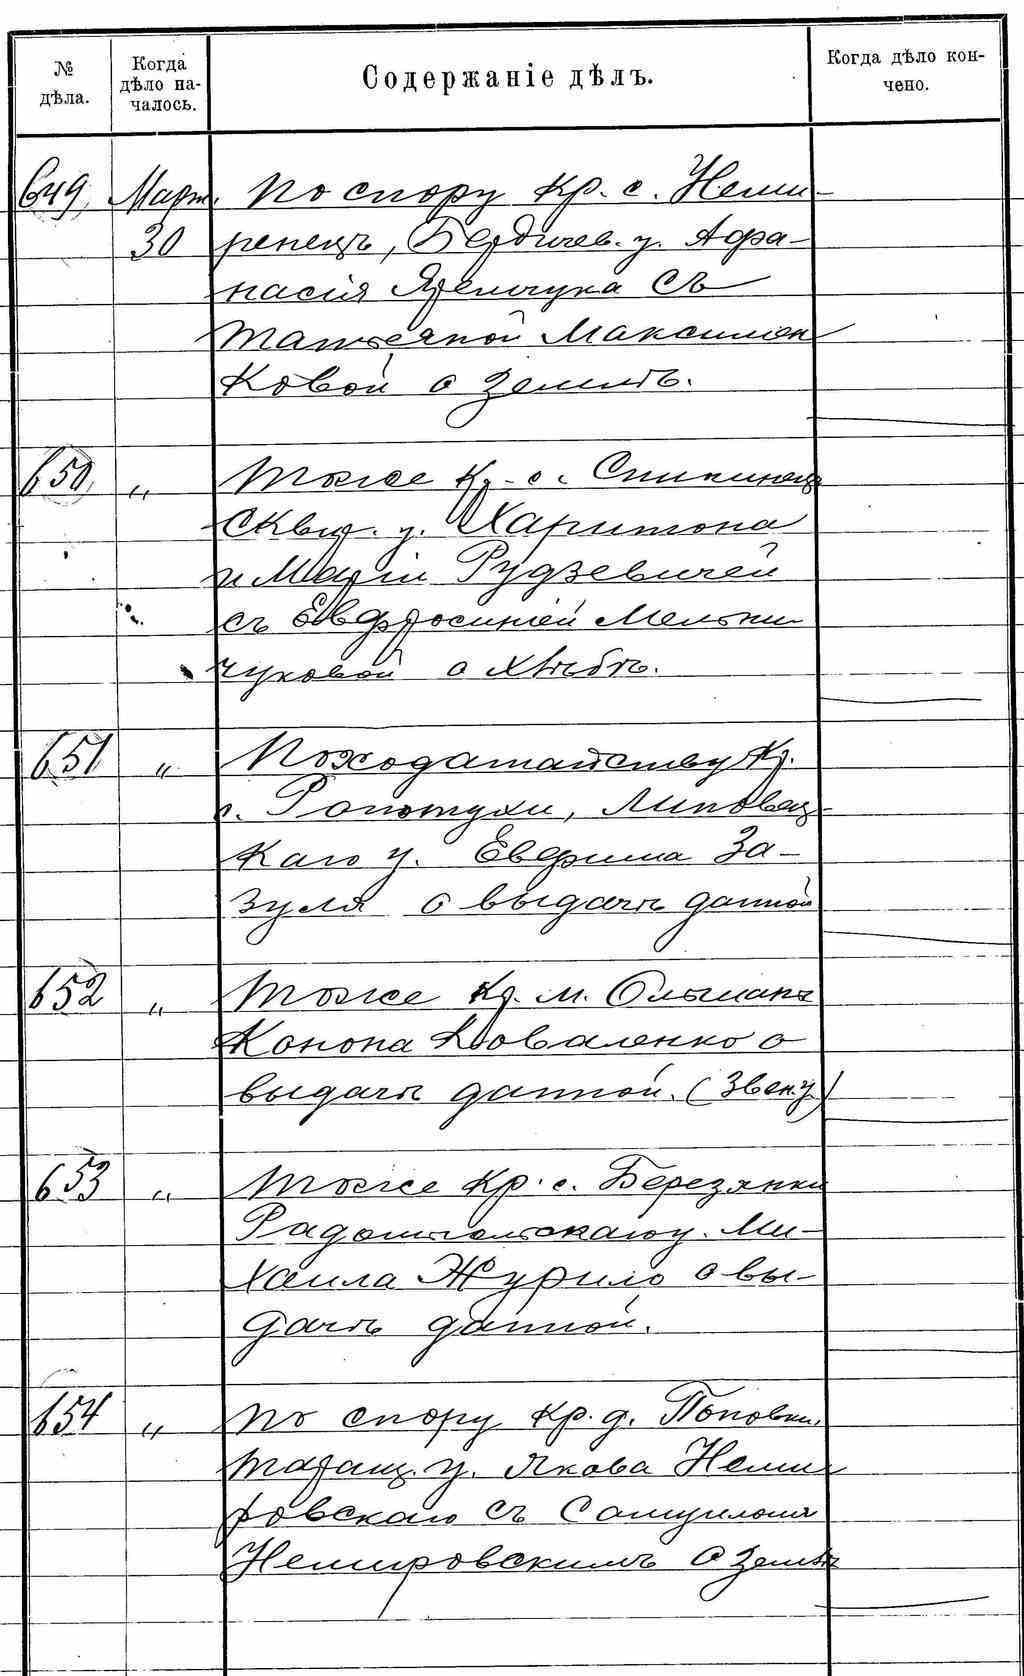 № дѣла. Когда дѣло началось. Содержаніе дѣлъ. Когда дѣло кончено.
649 Март. По спору кр. с. Неми-
30 ренецъ, Бердичев. у. Афа-
насія Яремчука съ
Татьяной Максимен
ковой о землѣ.
650 „ Тоже кр. с. Спичинец
Сквир. у. Харитона
и Маріи Рудзевичей
съ Евфросиніей Мельни
чуковой о хлѣбѣ.
651 „ По ходатайству кр.
с. Ропотухи, Липовец-
каго у. Евфима За-
зуля о выдачѣ данной
652 „ Тоже кр. м. Ольшаны
Конона Коваленко о
выдачѣ данной. (Звен. у.)
653 „ Тоже кр. с. Березянки
Радомысльскаго у. Ми-
хаила Журило о вы-
дачѣ данной.
654 „ По спору кр. д. Поповки,
Таращ. у. Якова Неми
ровскаго съ Самуиломъ
Немировскимъ о землѣ